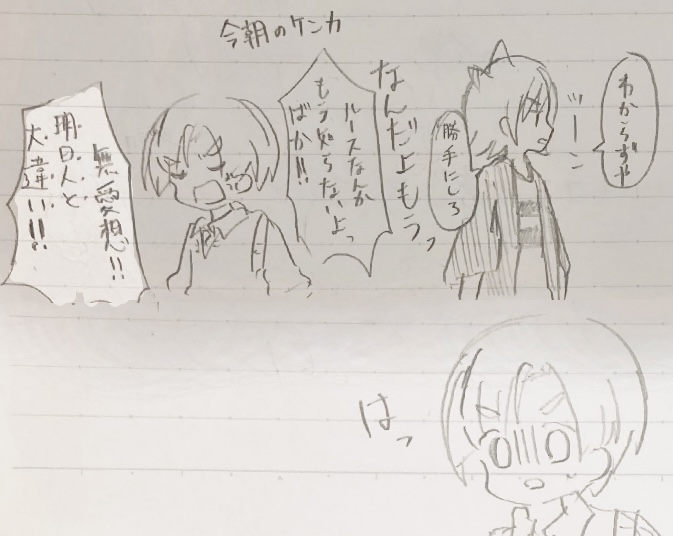 今朝のケンカ
わからずや
ツーン
勝手にしろ
なんだよもうっ
ルースなんか
もう知らないよっ
ばか!!
無愛想!!
明日人と
大違い!!!
はっ